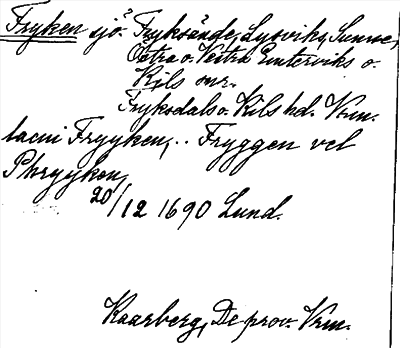 Fryken sjö. Fryksände, Lysvik, Sunne,
Östra o. Västra Emterviks o.
Kils snr.
Fryksdals o. Kils hd. Vrm.
lacui Fryyken, .. Fryggen vel
Phryyken,
20/12 1690 Lund.
Kaarberg, De prov. Vrm.